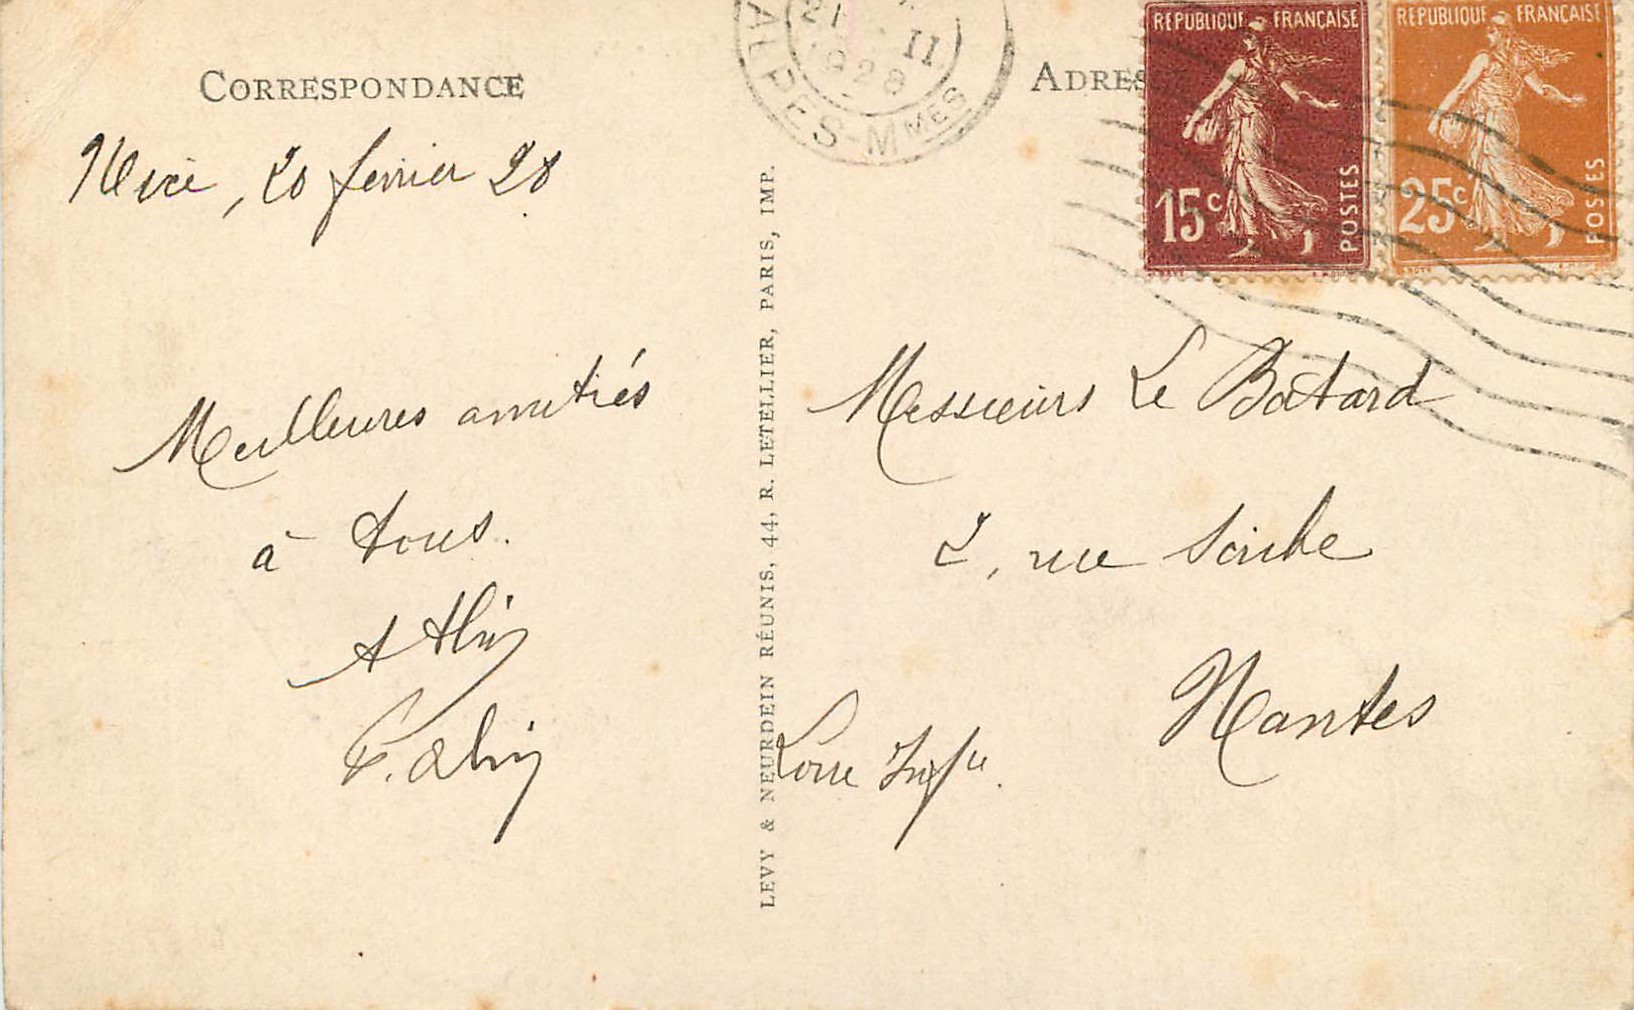 CORRESPONDANCE
Nice, 20 février 28
Meilleures amitiés
à tous.
21 II
1928
ALPES-MMES
LEVY & NEURDEIN RÉUNIS, 44, R. LETELLIER, PARIS, IMP.
ADRES
REPUBLIQUE FRANÇAISE
15c
POSTES
REPUBLIQUE FRANÇAISE
25c
POSTES
Messieurs Le Batard
2, rue
Nantes
Loire Infre.